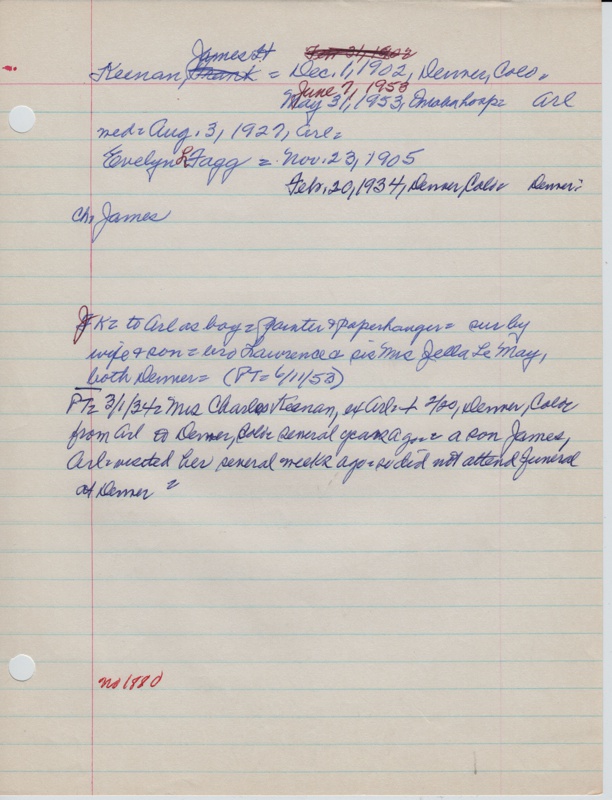 James H Feb 21, 1902
Keenan, Frank = Dec. 1, 1902, Denver, Colo.
June 7, 1953
May 31, 1953, Omaha hosp= Arl
med = Aug. 3, 1927, Arl =
Evelyn L Fagg = Nov. 23, 1905
Feb. 20, 1934, Denver, Colo= Denver=
ch= James
JK= to Arl as boy = painter & paperhanger = sur by
wife & son = bro Lawrence & sis Mrs Zella Le May,
both Denver = (PT= 6/11/53)
PT= 3/1/34 = Mrs Charles Keenan, ex Arl = + 2/20, Denver, Colo=
from Arl to Denver, Colo= several years ago = a son James,
Arl = visited her several weeks ago = so did not attend funeral
at Denver =
no 1880